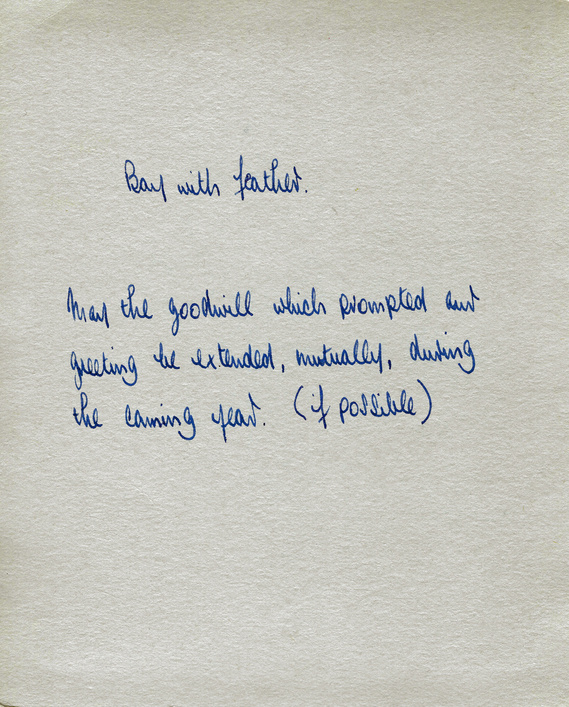 Boy with feather.
May the goodwill which prompted our
greeting be extended, mutually, during
the coming year. (if possible)